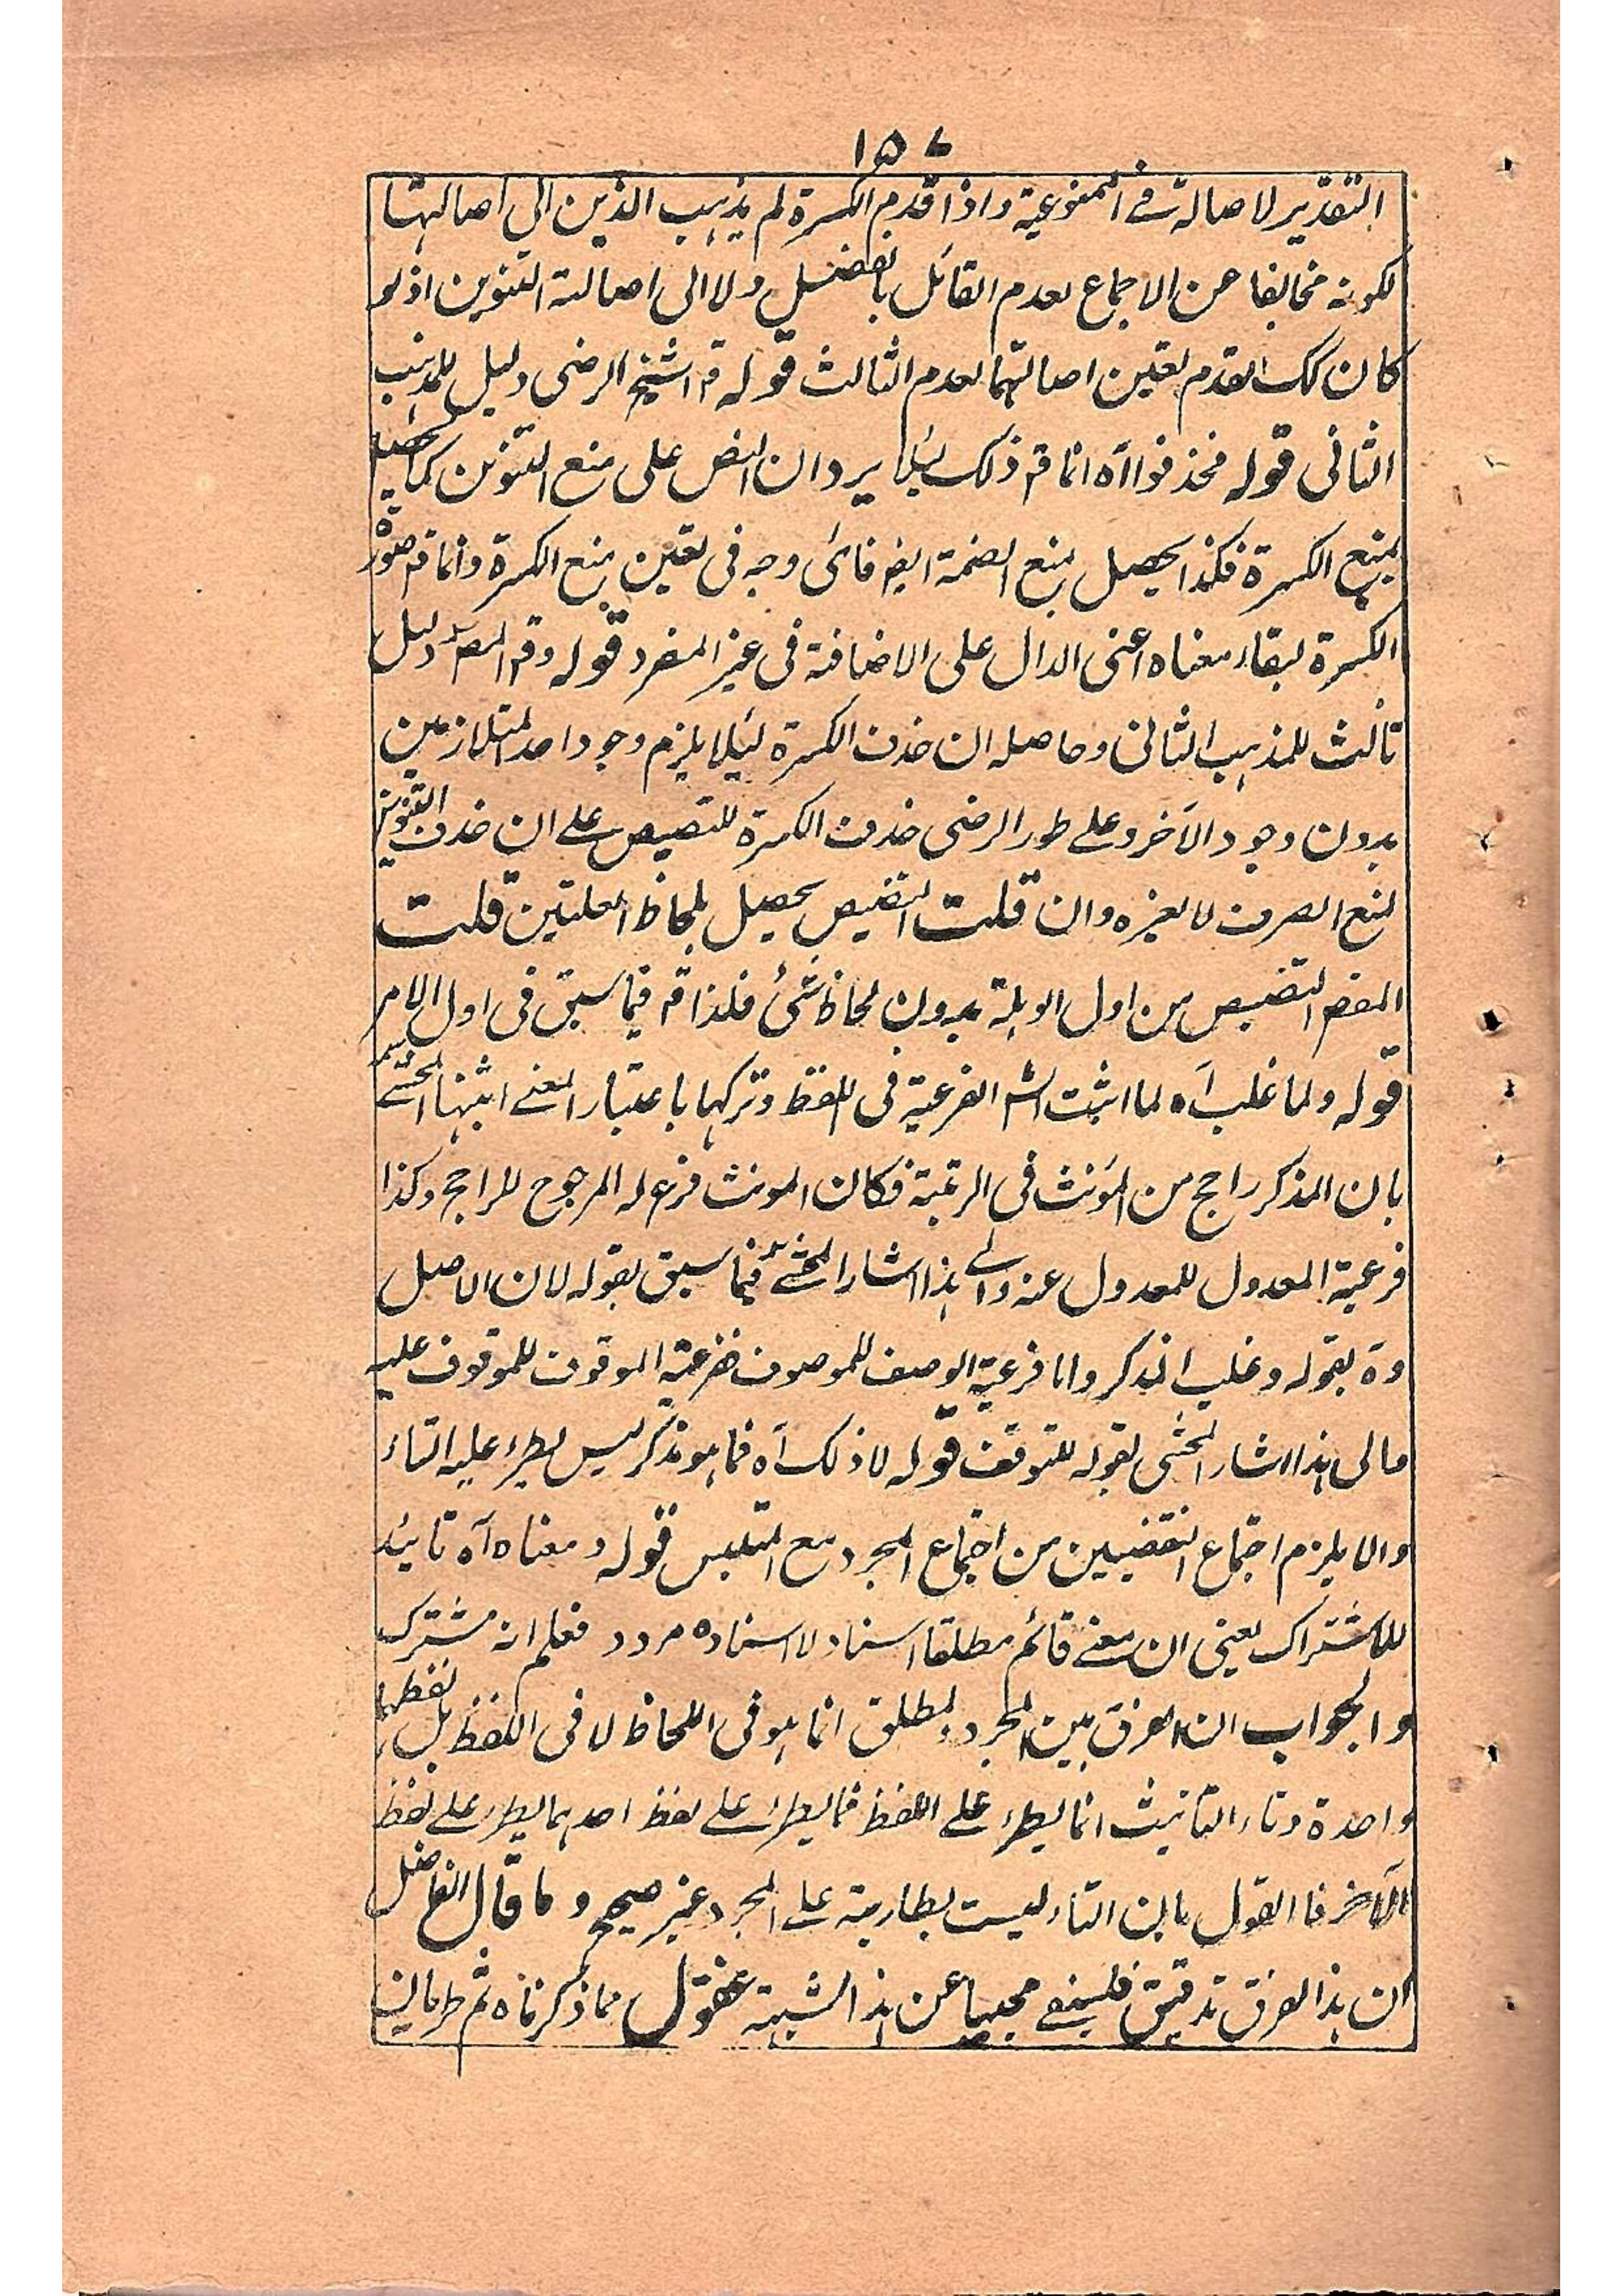 ١٥٧
التقدير لاصالة في الممنوعية واذا قدم الكسرة لم يذهب الذهن الى اصالتها
لكونه مخالفا عن الاجماع لعدم القائل بالفضل ولا الى اصالة التنوين اذ لو
كان كك لقدم لتعين اصالتهما لعدم الثالث قوله قم الشيخ الرضى دليل للمذهب
الثانى قوله فحذفوا آه انما قم ذلك لئلا يرد ان النص على منع التنوين كما يحصل
بمنع الكسرة فكذا يحصل بمنع الضمة ايضم فاى وجه فى تعين منع الكسرة وانما قم صورة
الكسرة لبقاء معناه اعنى الدال على الاضافة فى غير المفرد قوله وقم المصم دليل
ثالث للمذهب الثانى وحاصله ان حذف الكسرة لئلا يلزم وجود احد المتلازمين
بدون وجود الآخر وعلى طور الرضى حذف الكسرة للتنصيص على ان حذف التنوين
لمنع الصرف لا لغيره وان قلت التنصيص يحصل بلحاظ العلتين قلت
المقصم التنصيص من اول الوهلة بدون لحاظ شئ فلذا قم فيما سبق فى اول الامر
قوله ولما غلب آه لما اثبت الشم الفرعية فى اللفظ وتركها باعتبار المعنى اثبتها المحشى
بان المذكر راجح من المؤنث فى الرتبة فكان المونث فرع له المرجوح للراجح وكذا
فرعية المعدول للمعدول عنه والى هذا اشار المحشى فيما سبق بقوله لان الاصل
وة بقوله وغلب المذكر واما فرعية الوصف للموصوف ففرعية الموقوف للموقوف عليه
والى هذا اشار المحشى بقوله للتوقف قوله لا ذلك آه فما هو مذكر ليس يطرء عليه التاء
والا يلزم اجتماع النقضيين من اجتماع المجرد مع المتلبس قوله ومعناه آه تائيد
للاشتراك يعنى ان معنى قائم مطلقا اسناد لا اسناده مردد فعلم انه مشترك
والجواب ان الفرق بين المجرد والمطلق انما هو فى اللحاظ لا فى اللفظ بل لفظهما
واحدة وتاء التانيث انما يطرء على اللفظ فما يطرء على لفظ احدهما يطرء على لفظ
الآخر فالقول بان التاء ليست بطارية على المجرد غير صحيح وما قال الفاضل
ان هذا الفرق تدقيق فلسفى مجيبا عن هذا الشبهة غفول مما ذكرناه ثم طريان